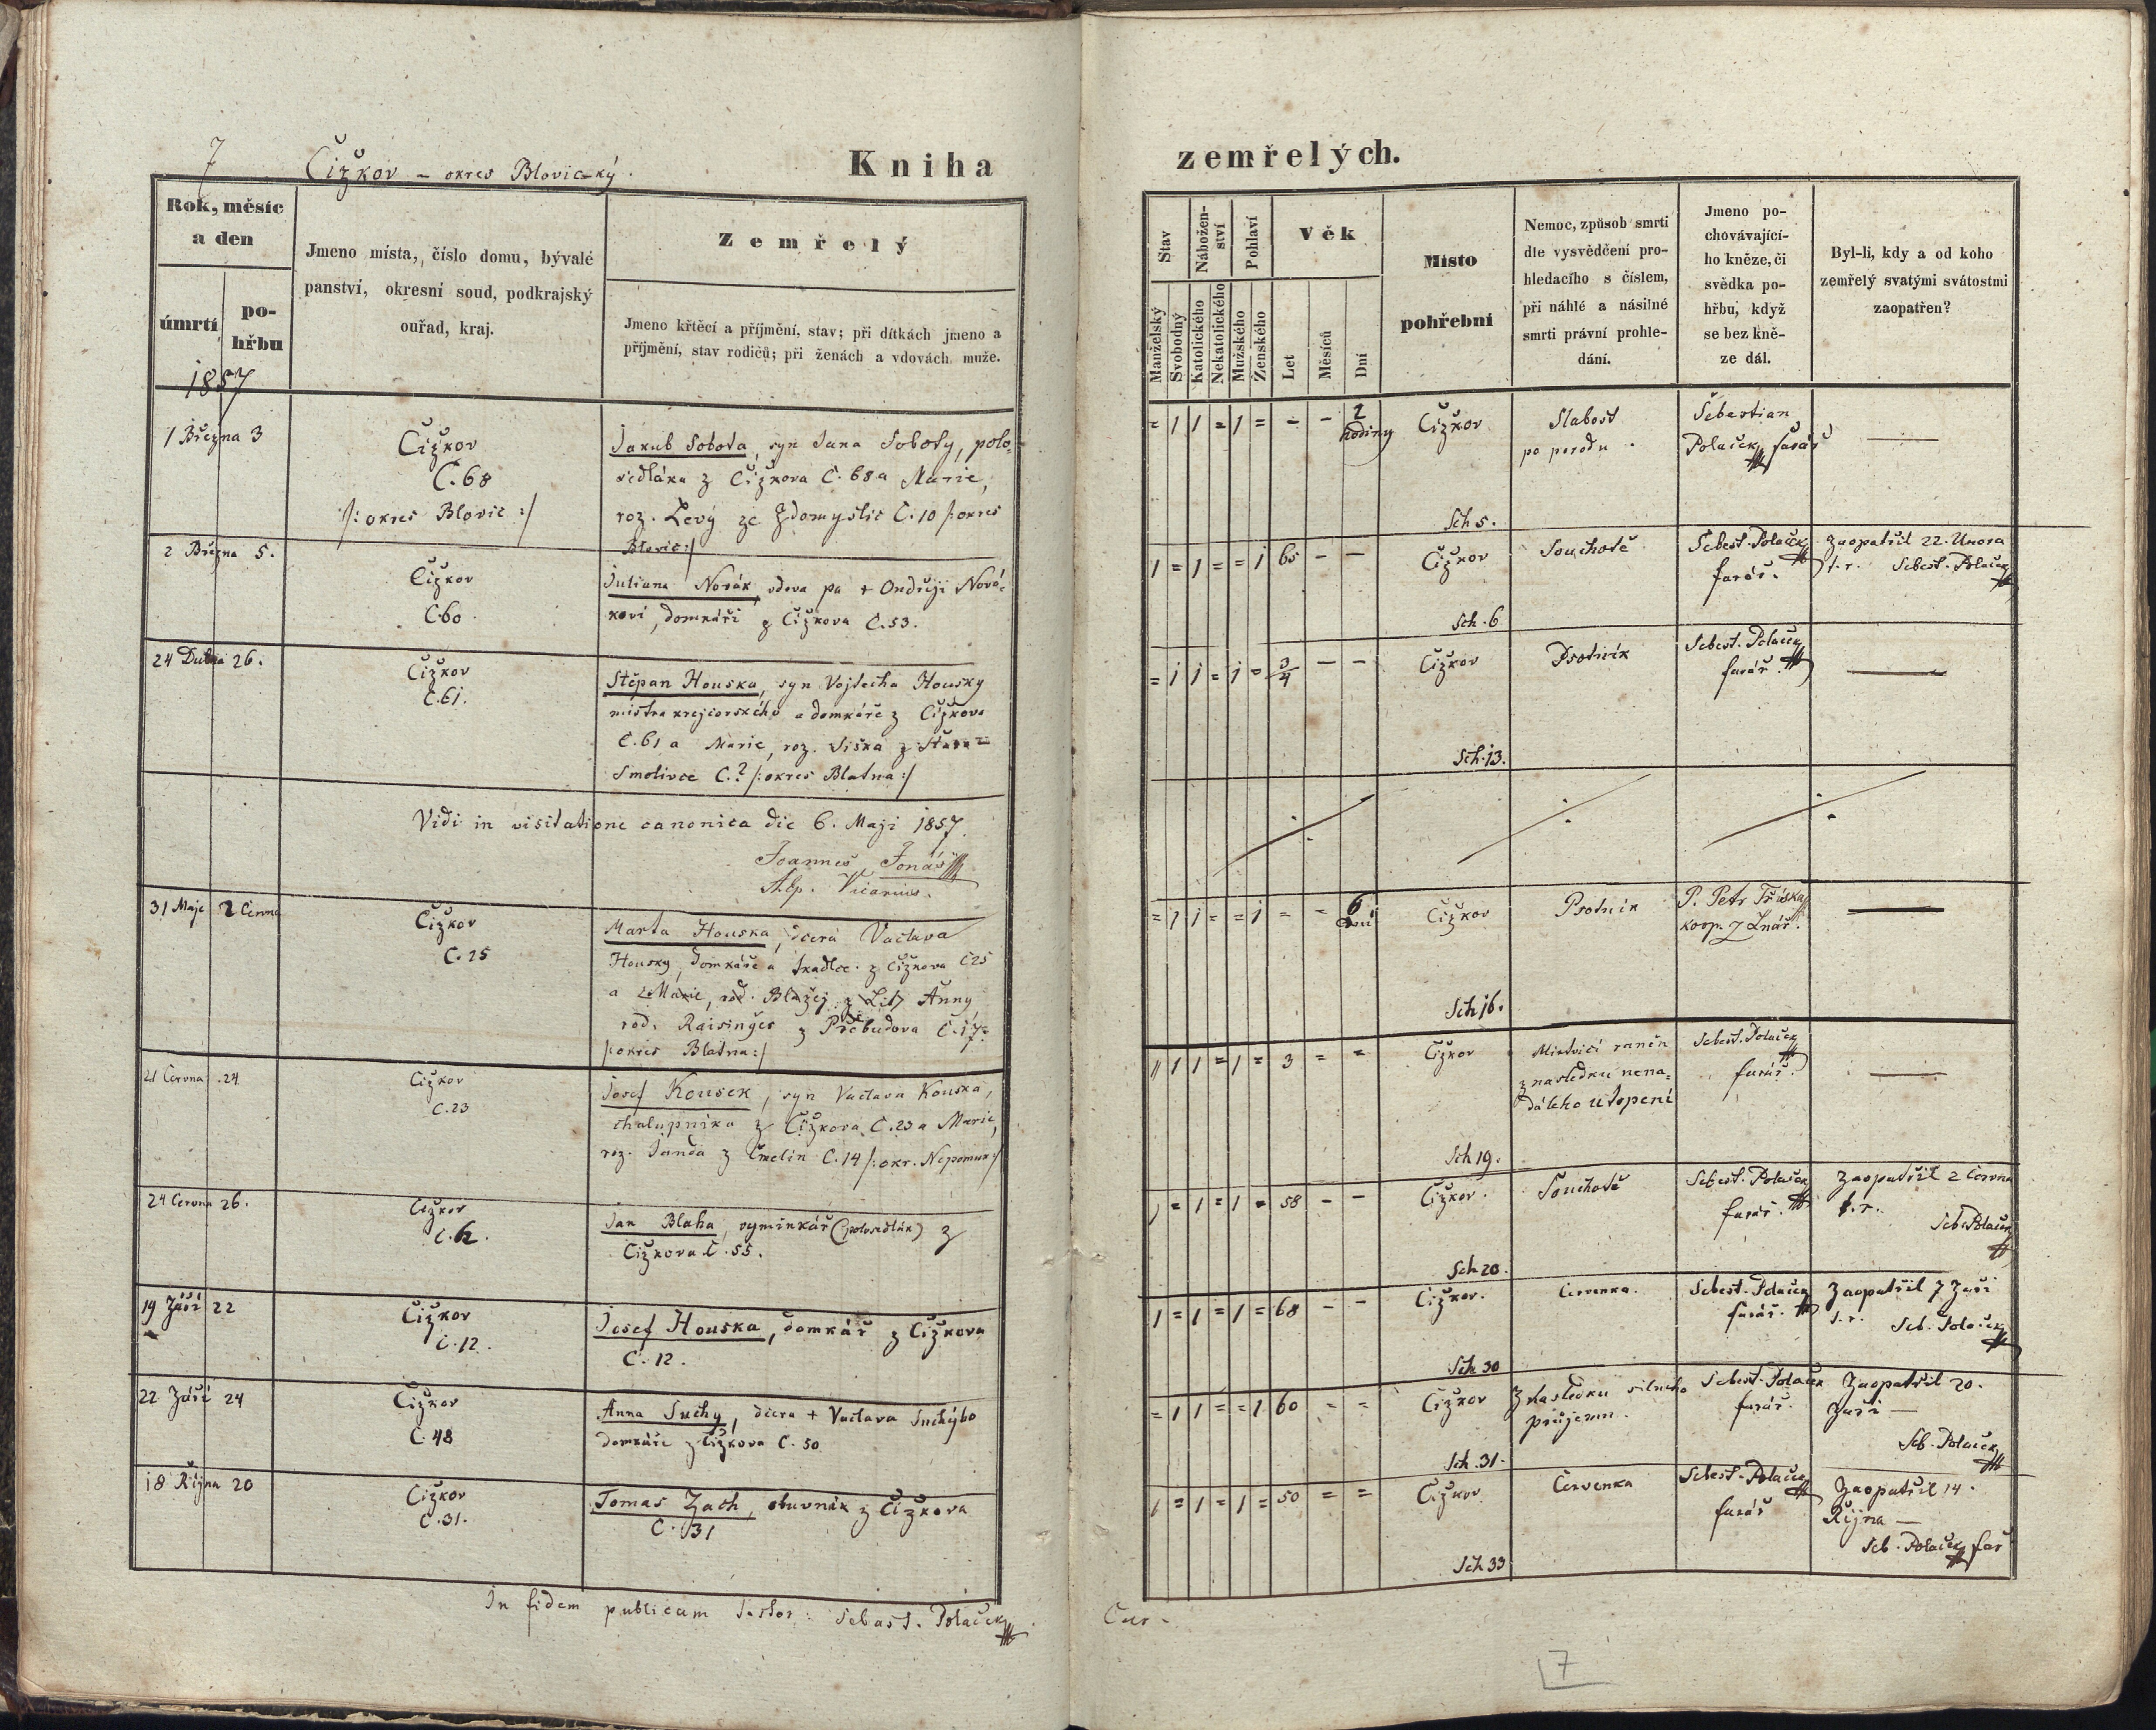 7 Čižkov - okres Blovický.
Kniha
Rok, měsíc
a den
úmrtí
po-
hřbu
1857
Jmeno místa, číslo domu, bývalé
panství, okresní soud, podkrajský
ouřad, kraj.
Zemřelý
Jmeno křtěcí a příjmění, stav; při dítkách jmeno a
příjmění, stav rodičů; při ženách a vdovách muže.
1 Března 3
Čižkov
Č.68
/: okres Blovic :/
Jakub Sobota, syn Jana Soboty, polo-
sedláka z Čižkova Č. 68 a Marie,
roz. Levý ze Zdomyslic Č.10 /: okres
Blovic :/
2 Března 5.
Čižkov
Č60
Juliana Novák, vdova pa + Ondřeji Nová-
kovi, domkáři z Čižkova Č.53.
24 Dubna 26.
Čižkov
Č.61.
Stěpan Houska, syn Vojtěcha Housky
mistra krejčovského a domkáře z Čižkova
Č.61 a Marie, roz. Siska z Stara-
Smolivce Č.? /: okres Blatna :/
Vidi in visitatione canonica die 6. Maji 1857.
Joannes Jonáš
Vicarius.
31 Maje 2 Června
Čižkov
Č.25
Marta Houska, dcera Vaclava
Housky, domkáře a tkadlce z Čižkova Č25
a Marie, rod. Blažej z Lit Anny
rod. Raisinger z Předbudova Č.17
/: okres Blatna :/
21 Června .24
Čižkov
Č.23
Josef Kousek, syn Vaclava Kouska,
chalupníka z Čižkova Č.23 a Marie,
roz. Janda z Čmelin Č.14 /: okr. Nepomuk :/
24 Června 26.
Čižkov
Č.6.
Jan Blaha, vyminkář (polosedlák) z
Čižkova Č.55.
19 Září 22
Čižkov
Č.12.
Josef Houska, domkář z Čižkova
Č.12.
22 Září 24
Čižkov
Č.48
Anna Suchy, dcera + Vaclava Suchýho
domkáře z Čižkova Č.50
18 Října 20
Čižkov
Č.31.
Tomas Zach, obuvník z Čižkova
Č.31
In fidem publicam testor: Sebast. Polaček
zemřelých.
Stav
Nábožen-
ství
Pohlaví
Věk
Manželský
Svobodný
Katolického
Nekatolického
Mužského
Ženského
Let
Měsíců
Dní
Místo
pohřební
Nemoc, způsob smrti
dle vysvědčení pro-
hledacího s číslem,
při náhlé a násilné
smrti právní prohle-
dání.
Jmeno po-
chovávající-
ho kněze, či
svědka po-
hřbu, když
se bez kně-
ze dál.
Byl-li, kdy a od koho
zemřelý svatými svátostmi
zaopatřen?
= 1 1 = 1 = - - 2
hodiny
Čižkov
Sch 5.
Slabost
po porodu
Šebestian
Polaček, farář
1 = 1 = = 1 65 - -
Čižkov
Sch. 6
Souchotě
Sebest. Polaček
farář.
Zaopatřil 22. Unora
t.r. Sebest. Polaček
= 1 1 = 1 = 3/4 - -
Čižkov
Sch. 13.
Psotník
Sebest. Polaček
farář
= 1 1 = = 1 = = 6
dní
Čižkov
Sch 16.
Psotník
P. Petr Tříska
koop. z Lnář.
1 1 = 1 = 3 = =
Čižkov
Sch 19.
Mrtvicí raněn
z nasledku nena-
dáleho utopení
Sebest. Polaček
farář.
1 = 1 = 1 = 58 - -
Čižkov.
Sch 20.
Souchotě
Sebest. Polaček
farář.
Zaopatřil 2 Června
t.r.
Seb. Polaček
1 = 1 = 1 = 68 - -
Čižkov.
Sch 30
Červenka.
Sebest. Polaček
farář.
Zaopatřil 7 Září
t.r. Seb. Polaček
= 1 1 = = 1 60 - =
Čižkov
Sch. 31.
Z nasledku silneho
průjemu.
Sebest. Polaček
farář.
Zaopatřil 20.
Září —
Seb. Polaček
1 = 1 = 1 = 50 = =
Čižkov
Sch 33
Červenka
Sebest. Polaček
farář
Zaopatřil 14.
Října —
Seb. Polaček far
Cur-
7